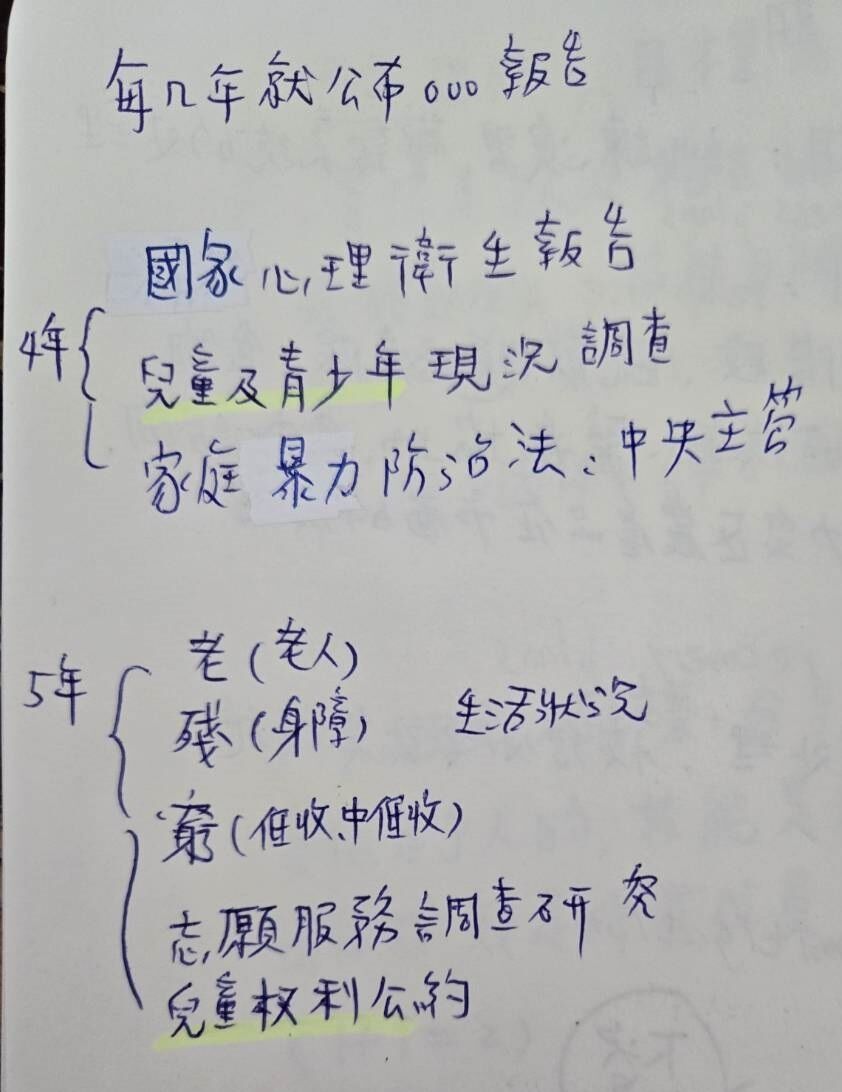 每几年就公布ooo報告
國家心理衛生報告
4年
兒童及青少年現況調查
家庭暴力防治法:中央主管
5年
老(老人)
殘(身障) 生活狀況
窮(催收、中催收)
志願服務調查研究
兒童权利公約